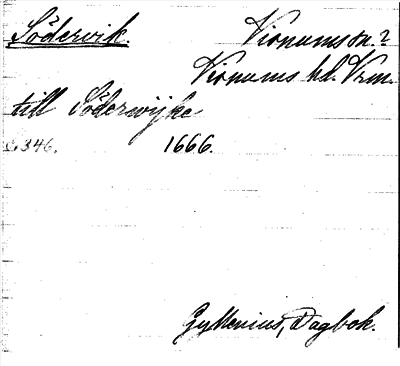 Södervik. Visnums sn.?
Visnums hd. Vrm.
till Söderwijke
s. 346. 1666.
Gyllenius, Dagbok.